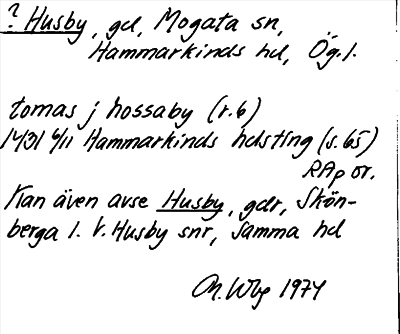 ? Husby, gd, Mogata sn,
Hammarkinds hd, Ög. l.
tomas j hossaby (r. 6)
1431 6/11 Hammarkinds hdsting (s. 65)
RAp or.
Kan även avse Husby, gdr, Skön-
berga l. V. Husby snr, samma hd
M. Wbg 1974